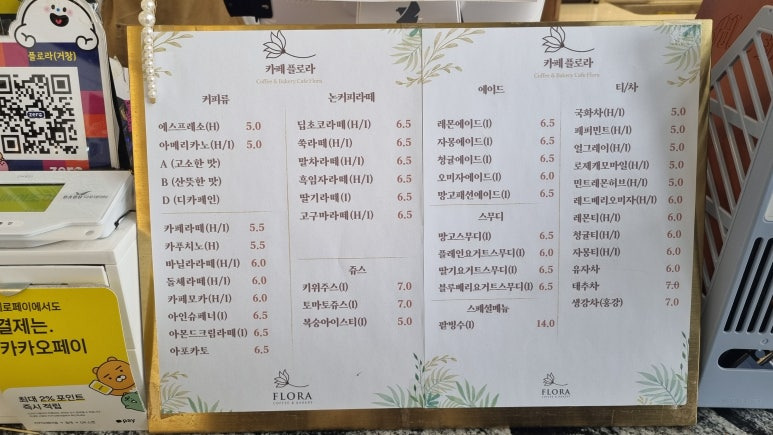 플로라(거창)
zero
카페 플로라
Coffee & Bakery Cafe Flora
커피류
에스프레소(H) 5.0
아메리카노(H/I) 5.0
A (고소한 맛)
B (산뜻한 맛)
D (디카페인)
카페라떼(H/I) 5.5
카푸치노(H) 5.5
바닐라라떼(H/I) 6.0
돌체라떼(H/I) 6.0
카페모카(H/I) 6.0
아인슈페너(I) 6.5
아몬드크림라떼(I) 6.5
아포카토 6.5
논커피라떼
딥초코라떼(H/I) 6.5
쑥라떼(H/I) 6.5
말차라떼(H/I) 6.5
흑임자라떼(H/I) 6.5
딸기라떼(I) 6.5
고구마라떼(H/I) 6.5
쥬스
키위주스(I) 7.0
토마토쥬스(I) 7.0
복숭아아이스티(I) 5.0
FLORA
COFFEE & BAKERY
카페 플로라
Coffee & Bakery Cafe Flora
에이드
레몬에이드(I) 6.5
자몽에이드(I) 6.5
청귤에이드(I) 6.5
오미자에이드(I) 6.0
망고패션에이드(I) 6.5
스무디
망고스무디(I) 6.5
플레인요거트스무디(I) 6.0
딸기요거트스무디(I) 6.5
블루베리요거트스무디(I) 6.5
스페셜메뉴
팥빙수(I) 14.0
티/차
국화차(H/I) 5.0
페퍼민트(H/I) 5.0
얼그레이(H/I) 5.0
로제캐모마일(H/I) 5.0
민트레몬허브(H/I) 5.0
레드베리오미자(H/I) 6.0
레몬티(H/I) 6.0
청귤티(H/I) 6.0
자몽티(H/I) 6.0
유자차 6.0
대추차 7.0
생강차(홍강) 7.0
FLORA
COFFEE & BAKERY
로페이에서도
결제는.
카카오페이
최대 2% 포인트
즉시 적립
pay